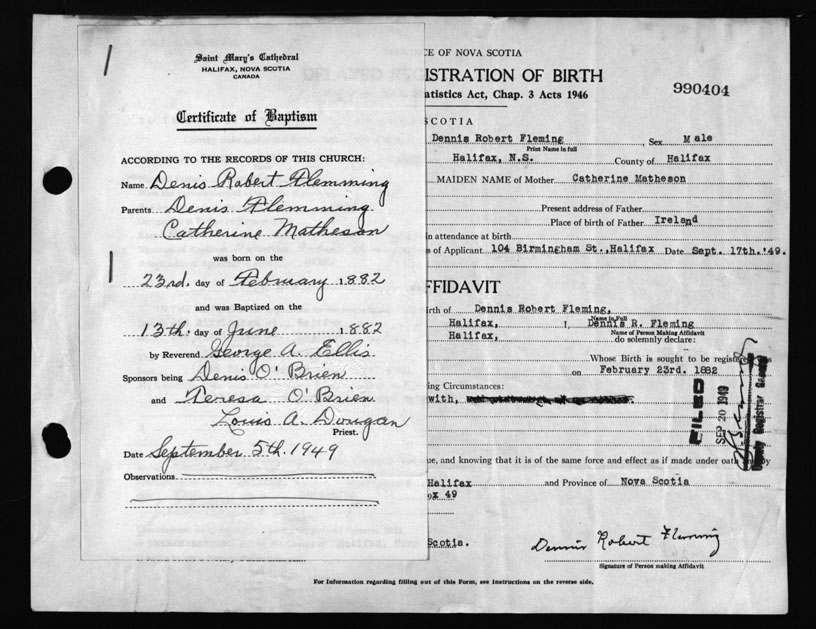 Saint Mary's Cathedral
HALIFAX, NOVA SCOTIA
CANADA
Certificate of Baptism
ACCORDING TO THE RECORDS OF THIS CHURCH:
Name Denis Robert Flemming
Parents Denis Flemming
Catherine Matheson
was born on the
23rd. day of February 1882
and was Baptized on the
13th. day of June 1882
by Reverend George A. Ellis
Sponsors being Denis O'Brien
and Teresa O'Brien
Louis A. Dougan
Priest.
Date September 5th. 1949
Observations
CE OF NOVA SCOTIA
ISTRATION OF BIRTH
atistics Act, Chap. 3 Acts 1946
990404
SCOTIA
Dennis Robert Fleming, Sex Male
Print Name in full
Halifax, N.S. County of Halifax
MAIDEN NAME of Mother Catherine Matheson
Present address of Father
Place of birth of Father Ireland
in attendance at birth
s of Applicant 104 Birmingham St., Halifax Date Sept. 17th. '49.
FFIDAVIT
birth of Dennis Robert Fleming,
Name in Full
Halifax, I, Dennis R. Fleming
Name of Person Making Affidavit
Halifax, do solemnly declare:
Whose Birth is sought to be registered is
on February 23rd. 1882
ing Circumstances:
with,
FILED
SEP 20 1949
Deputy Registrar General
ue, and knowing that it is of the same force and effect as if made under oath by
Halifax and Province of Nova Scotia
x 49
Scotia.
Dennis Robert Fleming
Signature of Person making Affidavit
For Information regarding filling out of this Form, see Instructions on the reverse side.